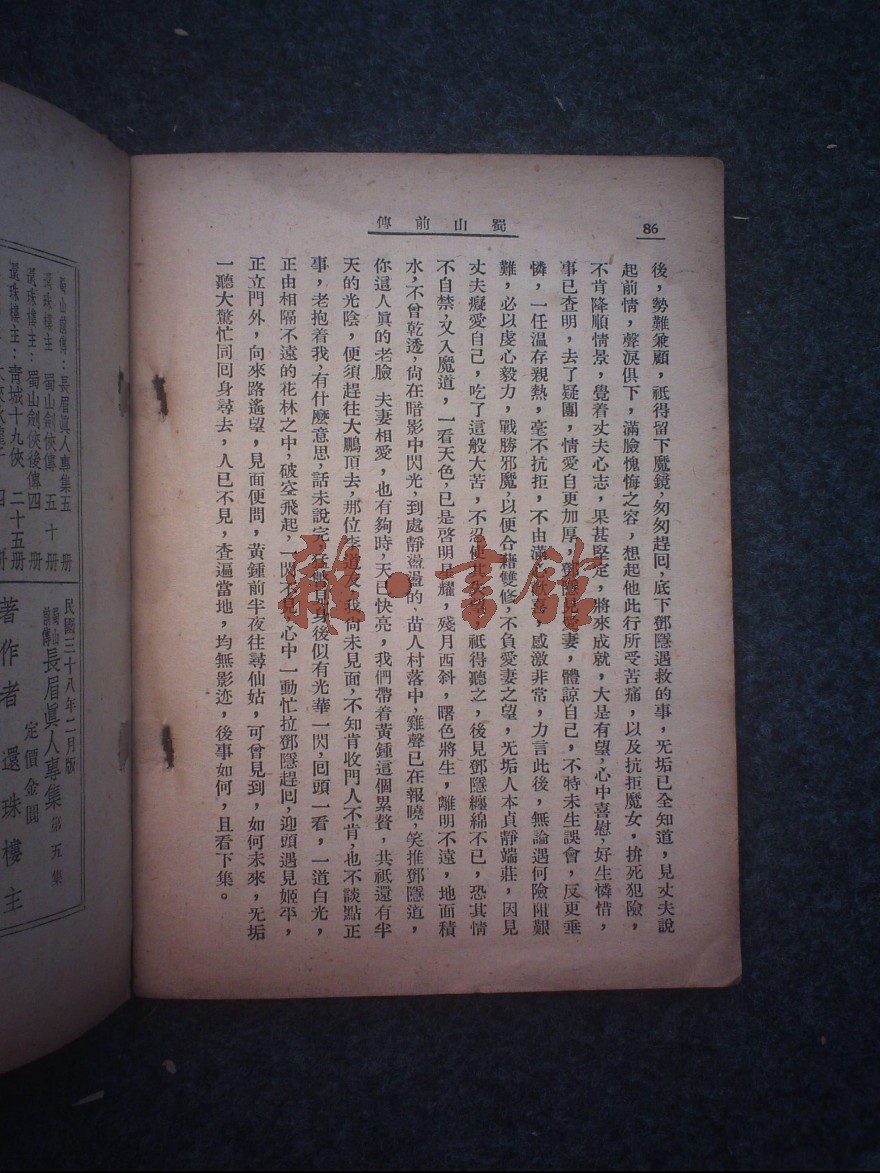 86
蜀山前傳
後，勢難兼顧，祗得留下魔鏡，匆匆趕囘，底下鄧隱遇救的事，无垢已全知道，見丈夫說
起前情，聲淚俱下，滿臉愧悔之容，想起他此行所受苦痛，以及抗拒魔女，拚死犯險，
不肯降順情景，覺着丈夫心志，果甚堅定，將來成就，大是有望，心中喜慰，好生憐惜，
事已查明，去了疑團，情愛自更加厚，鄧隱見愛妻，體諒自己，不特未生誤會，反更垂
憐，一任温存親熱，毫不抗拒，不由滿心歡喜，感激非常，力言此後，無論遇何險阻艱
難，必以虔心毅力，戰勝邪魔，以便合籍雙修，不負愛妻之望，无垢人本貞靜端莊，因見
丈夫癡愛自己，吃了這般大苦，不忍使其失望，祗得聽之，後見鄧隱纏綿不已，恐其情
不自禁，又入魔道，一看天色，已是啓明星耀，殘月西斜，曙色將生，離明不遠，地面積
水，不曾乾透，尙在暗影中閃光，到處靜盪盪的，苗人村落中，雞聲已在報曉，笑推鄧隱道，
你這人眞的老臉　夫妻相愛，也有夠時，天已快亮，我們帶着黃鍾這個累贅，共祗還有半
天的光陰，便須趕往大鵬頂去，那位李道友，我尙未見面，不知肯收門人不肯，也不談點正
事，老抱着我，有什麼意思，話未說完，猛瞥見身後似有光華一閃，囘頭一看，一道白光，
正由相隔不遠的花林之中，破空飛起，一閃不見，心中一動忙拉鄧隱趕囘，迎頭遇見姬平，
正立門外，向來路遙望，見面便問，黃鍾前半夜往尋仙姑，可曾見到，如何未來，无垢
一聽大驚忙同囘身尋去，人已不見，查逼當地，均無影迹，後事如何，且看下集。
雜·書館
民國三十八年二月版
蜀山前傳 長眉眞人專集 第五集
定價金圓
著作者 還珠樓主
蜀山前傳：長眉眞人專集五　册
還珠樓主　蜀山劍俠傳　五十　册
還珠樓主：蜀山劍俠後傳四　册
還珠樓主：靑城十九俠　二十五册